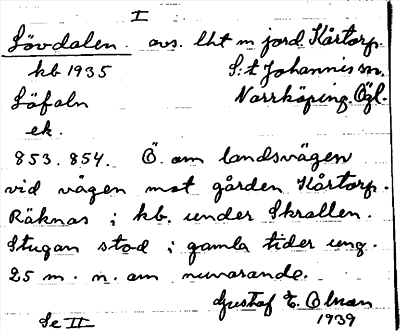 I
Lövdalen. avs. lht m jord. Kårtorp.
kb 1935 S:t Johannis sn.
Löfaln Norrköping. Ögl.
ek.
853. 854. Ö. om landsvägen
vid vägen mot gården Kårtorp.
Räknas i kb. under Skrallen.
Stugan stod i gamla tider ung.
25 m. n. om nuvarande.
Gustaf E. Olman
Se II 1939